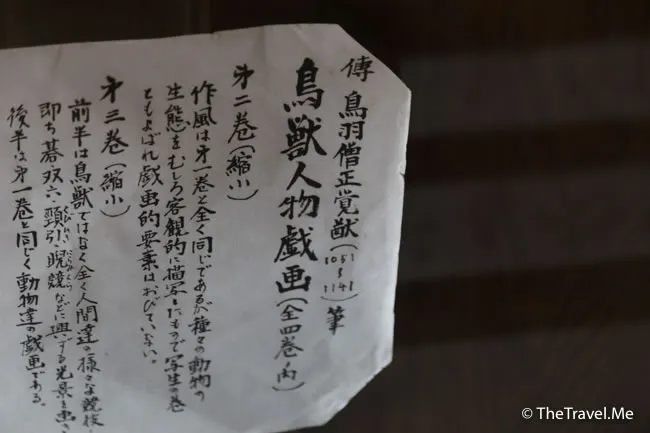 傳 鳥羽僧正覚猷(1053〜1141)筆
鳥獣人物戯画(全四巻ノ内)
第二巻(縮小)
作風は第一巻と全く同じであるが種々の動物の
生態をむしろ客観的に描写したもので写生の巻
ともよばれ戯画的要素はおびていない。
第三巻(縮小)
前半は鳥獣ではなく全く人間達の様々な競技
即ち碁・双六・頸引くびひき・睨競にらめっこなどに興ずる光景を
後半は第一巻と同じく動物達の戯画である。
© TheTravel.Me